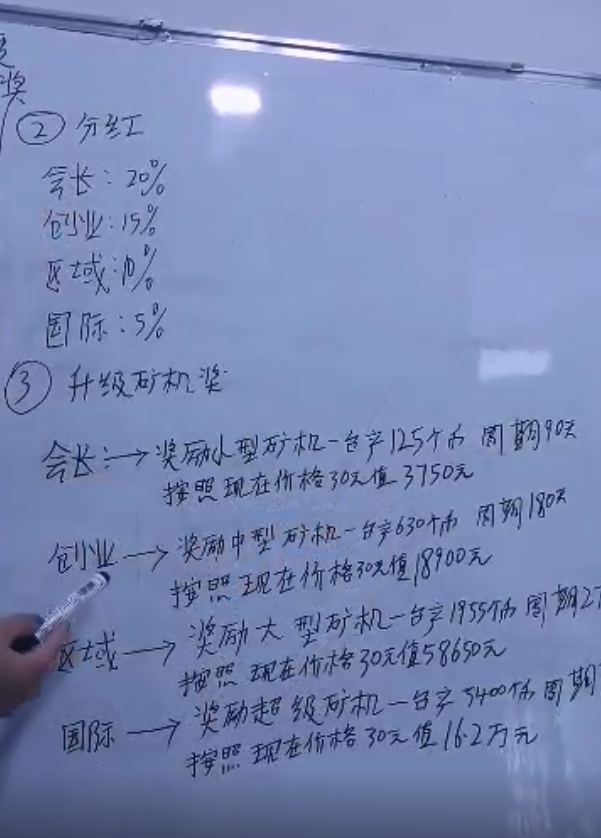 奖
② 分红
会长：20%
创业：15%
区域：10%
国际：5%
③ 升级矿机奖
会长：→奖励小型矿机一台产125个币 周期90天
按照现在价格30元值3750元
创业→奖励中型矿机一台产630个币 周期180天
按照现在价格30元值18900元
区域→奖励大型矿机一台产1955个币 周期2
按照现在价格30元值58650元
国际→奖励超级矿机一台产5400个币 周期
按照现在价格30元值16.2万元